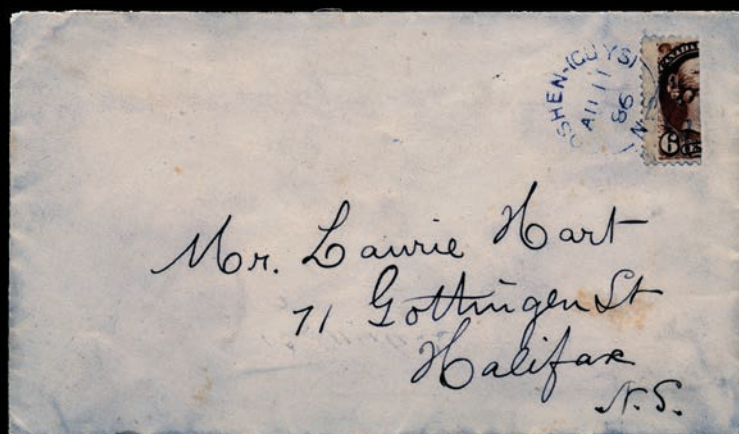 OSHEN-(GUYS)
AU 11
86
N
6
Mr. Laurie Hart
71 Gottingen St
Halifax
N.S.